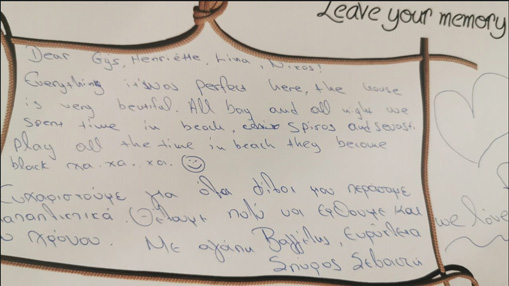 Leave your memory
Dear Gys, Henriëtte, Lina, Nikos!
Everything is was perfect here, the house
is very beutiful. All day and all night we
spent time in beach, Spiros and Sevasti
play all the time in beach they became
black xa. xa. xa.
Ευχαριστούμε για όλα φίλοι μου περάσαμε
απαπλιστικά. Θέλουμε πολύ να έρθουμε και
χρόνου. Με αγάπη Βαγγέλης, Ευρύκλεια
Σπύρος Σεβαστή
we love